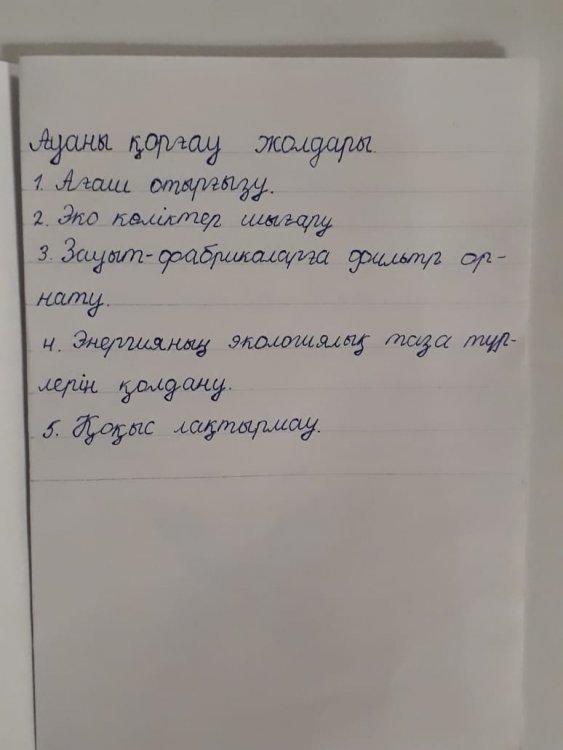 Ауаны қорғау жолдары
1. Ағаш отырғызу.
2. Эко көліктер шығару
3. Зауыт-фабрикаларға фильтр ор-
нату.
4. Энергияның экологиялық таза түр-
лерін қолдану.
5. Қоқыс лақтырмау.